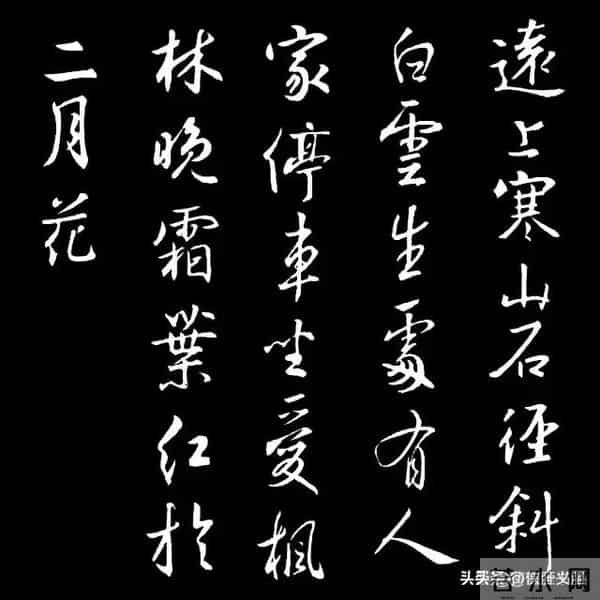 遠上寒山石徑斜
白雲生處有人
家停車坐愛楓
林晚霜葉紅於
二月花
头条@